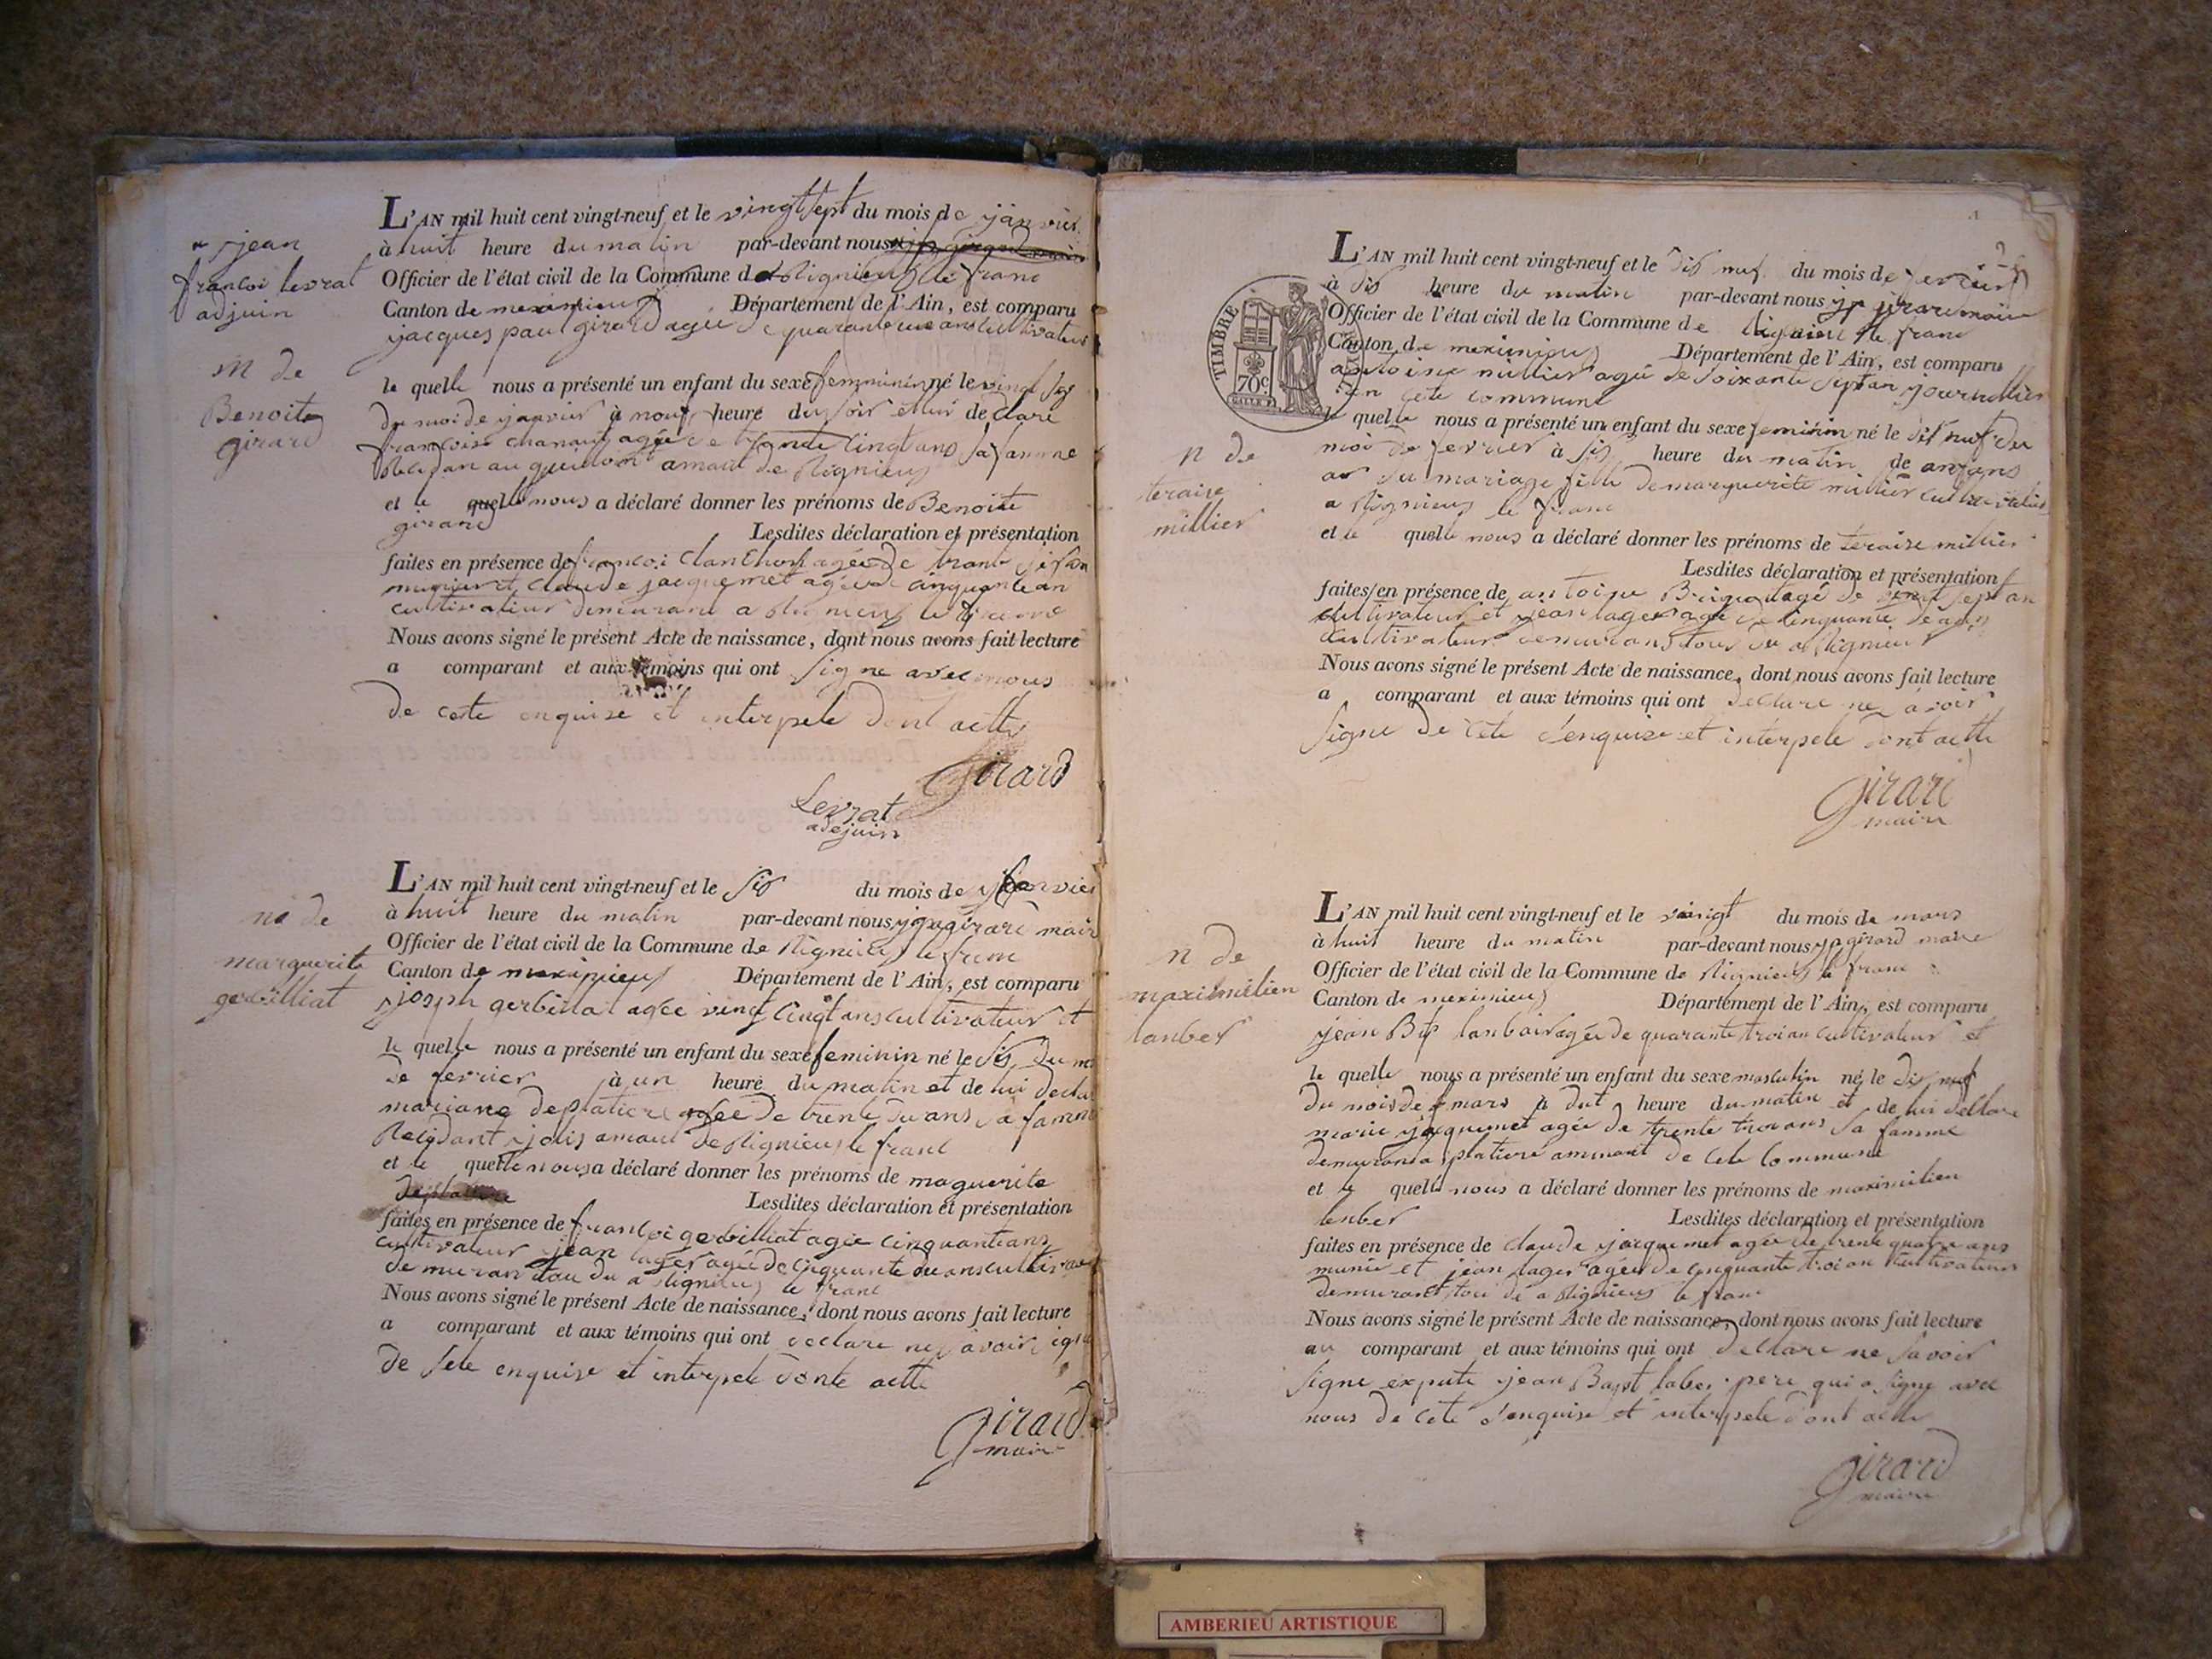 jean
francoi levrat
adjuin
L'AN mil huit cent vingt-neuf et le vingt sept du mois de janvier
à huit heure du matin par-devant nous
Officier de l'état civil de la Commune de Rignieux le franc
Canton de meximieux Département de l'Ain, est comparu
jacques paul girard agée de quarante un ans cultivateur
le quelle nous a présenté un enfant du sexe femminin né le vingt six
du moi de janvier à nouf heure du soir et lui declare
francoise chanau agée de trante cinqt ans sa famme
au amau de Rignieux
et le quelle nous a déclaré donner les prénoms de Benoite
girard
Lesdites déclaration et présentation
faites en présence de francoi clanchon agée de trante six an
munier et claude jacquemet agée de cinquante an
cultivateur demurant a Rignieux le franc
Nous avons signé le présent Acte de naissance, dont nous avons fait lecture
a comparant et aux témoins qui ont signe avec nous
de cete enquise et interpele dont actte
Girard
Levrat
adejuin
N de
Benoite
girard
L'AN mil huit cent vingt-neuf et le six du mois de
à huit heure du matin par-devant nous girard maire
Officier de l'état civil de la Commune de Rignieux le franc
Canton de meximieux Département de l'Ain, est comparu
joseph gerbillat agée vingt cinqt ans cultivateur et
le quelle nous a présenté un enfant du sexe feminin né le six du m
de fevrier à un heure du matin et de lui decla
mariane deplatiere agée de trente du ans sa famme
Residant jolis amau de Rignieux le franc
et le quelle nous a déclaré donner les prénoms de maguerite
Lesdites déclaration et présentation
faites en présence de francoi gerbilliat agée cinquantians
cultivateur jean lager agée de cinquante du ans cultivateur
demurant tou du a Rignieux le franc
Nous avons signé le présent Acte de naissance, dont nous avons fait lecture
a comparant et aux témoins qui ont declare ne savoir signe
de sete enquise et interpele donte actte
Girard
maire
na de
marguerite
gerbilliat
L'AN mil huit cent vingt-neuf et le dis nuf du mois de fevrier
à sis heure du matin par-devant nous jp girard maire
Officier de l'état civil de la Commune de Rignieux le franc
Canton de meximieux Département de l'Ain, est comparu
antoine millier agée de soixante sept an journallier
en cete commune
le quelle nous a présenté un enfant du sexe feminin né le dis nuf du
moi de fevrier à sis heure du matin de anfans
du mariage fille de marguerite millier cultivatrice
a Rignieux le franc
et le quelle nous a déclaré donner les prénoms de teraise millier
Lesdites déclaration et présentation
faites en présence de antoine agée de sept an
cultivateur et jean lager agée de cinquante
cultivateur demurans tous du a Rignieux
Nous avons signé le présent Acte de naissance, dont nous avons fait lecture
a comparant et aux témoins qui ont declare ne savoir
signe de cete d'enquise et interpele dont actte
Girard
maire
TIMBRE ROYAL
70c
n de
teraise
millier
L'AN mil huit cent vingt-neuf et le vingt du mois de mars
à huit heure du matin par-devant nous jp girard maire
Officier de l'état civil de la Commune de Rignieux le franc
Canton de meximieux Département de l'Ain, est comparu
jean Btp lanbair agée de quarante troi an cultivateur et
le quelle nous a présenté un enfant du sexe masculin né le dis nuf
du mois de mars à heure du matin et de lui dellare
marie jacquemet agée de trente troi ans sa famme
demurant a platiere ammaut de cete commune
et le quelle nous a déclaré donner les prénoms de maximilien
lenber
Lesdites déclaration et présentation
faites en présence de claude jacquemet agée de trente quatre ans
munie et jean lager agée de cinquante troi an cultivateur
demurant tou du a Rignieux le franc
Nous avons signé le présent Acte de naissance, dont nous avons fait lecture
au comparant et aux témoins qui ont dellare ne savoir
signe expute jean Bapt laber pere qui a signe avec
nous de cete d'enquise et interpele dont acte
Girard
maire
n de
maximilien
lanber
AMBERIEU ARTISTIQUE